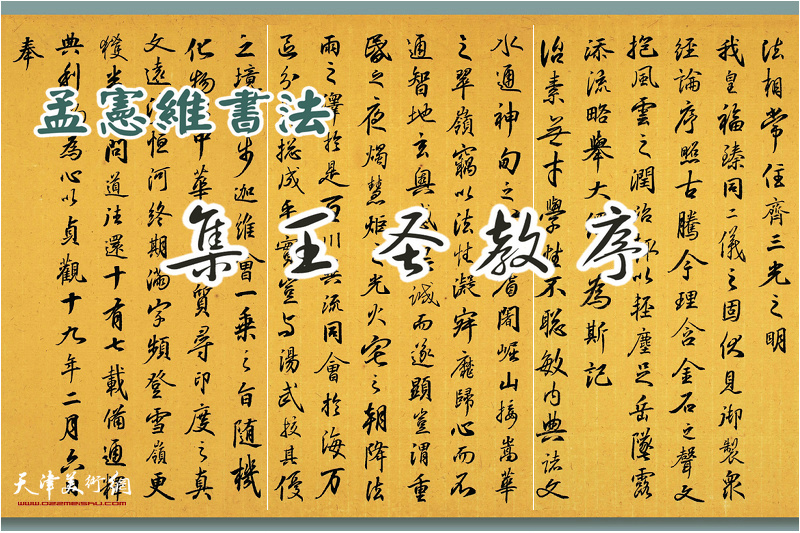 孟憲維書法
集王圣教序
法相常住齊三光之明
我皇福臻同二儀之固伏見御製衆
經論序照古騰今理含金石之聲文
抱風雲之潤治以輕塵足岳墜露
添流略舉大為斯記
治素無才學性不聰敏内典諸文
水通神甸之耆闍崛山接嵩華
之翠嶺竊以法性凝寂靡歸心而不
通智地玄奧誠而遂顯豈謂重
昏之夜燭慧炬之光火宅之朝降法
雨之澤於是百川異流同會於海万
區分總成乎實豈与湯武挍其優
之境步迦維會一乘之旨隨機
化物中華質尋印度之真
文遠涉恒河終期滿字頻登雪嶺更
獲半問道法還十有七載備通釋
典利為心以貞觀十九年二月六
奉
天津美術網
www.022meishu.com